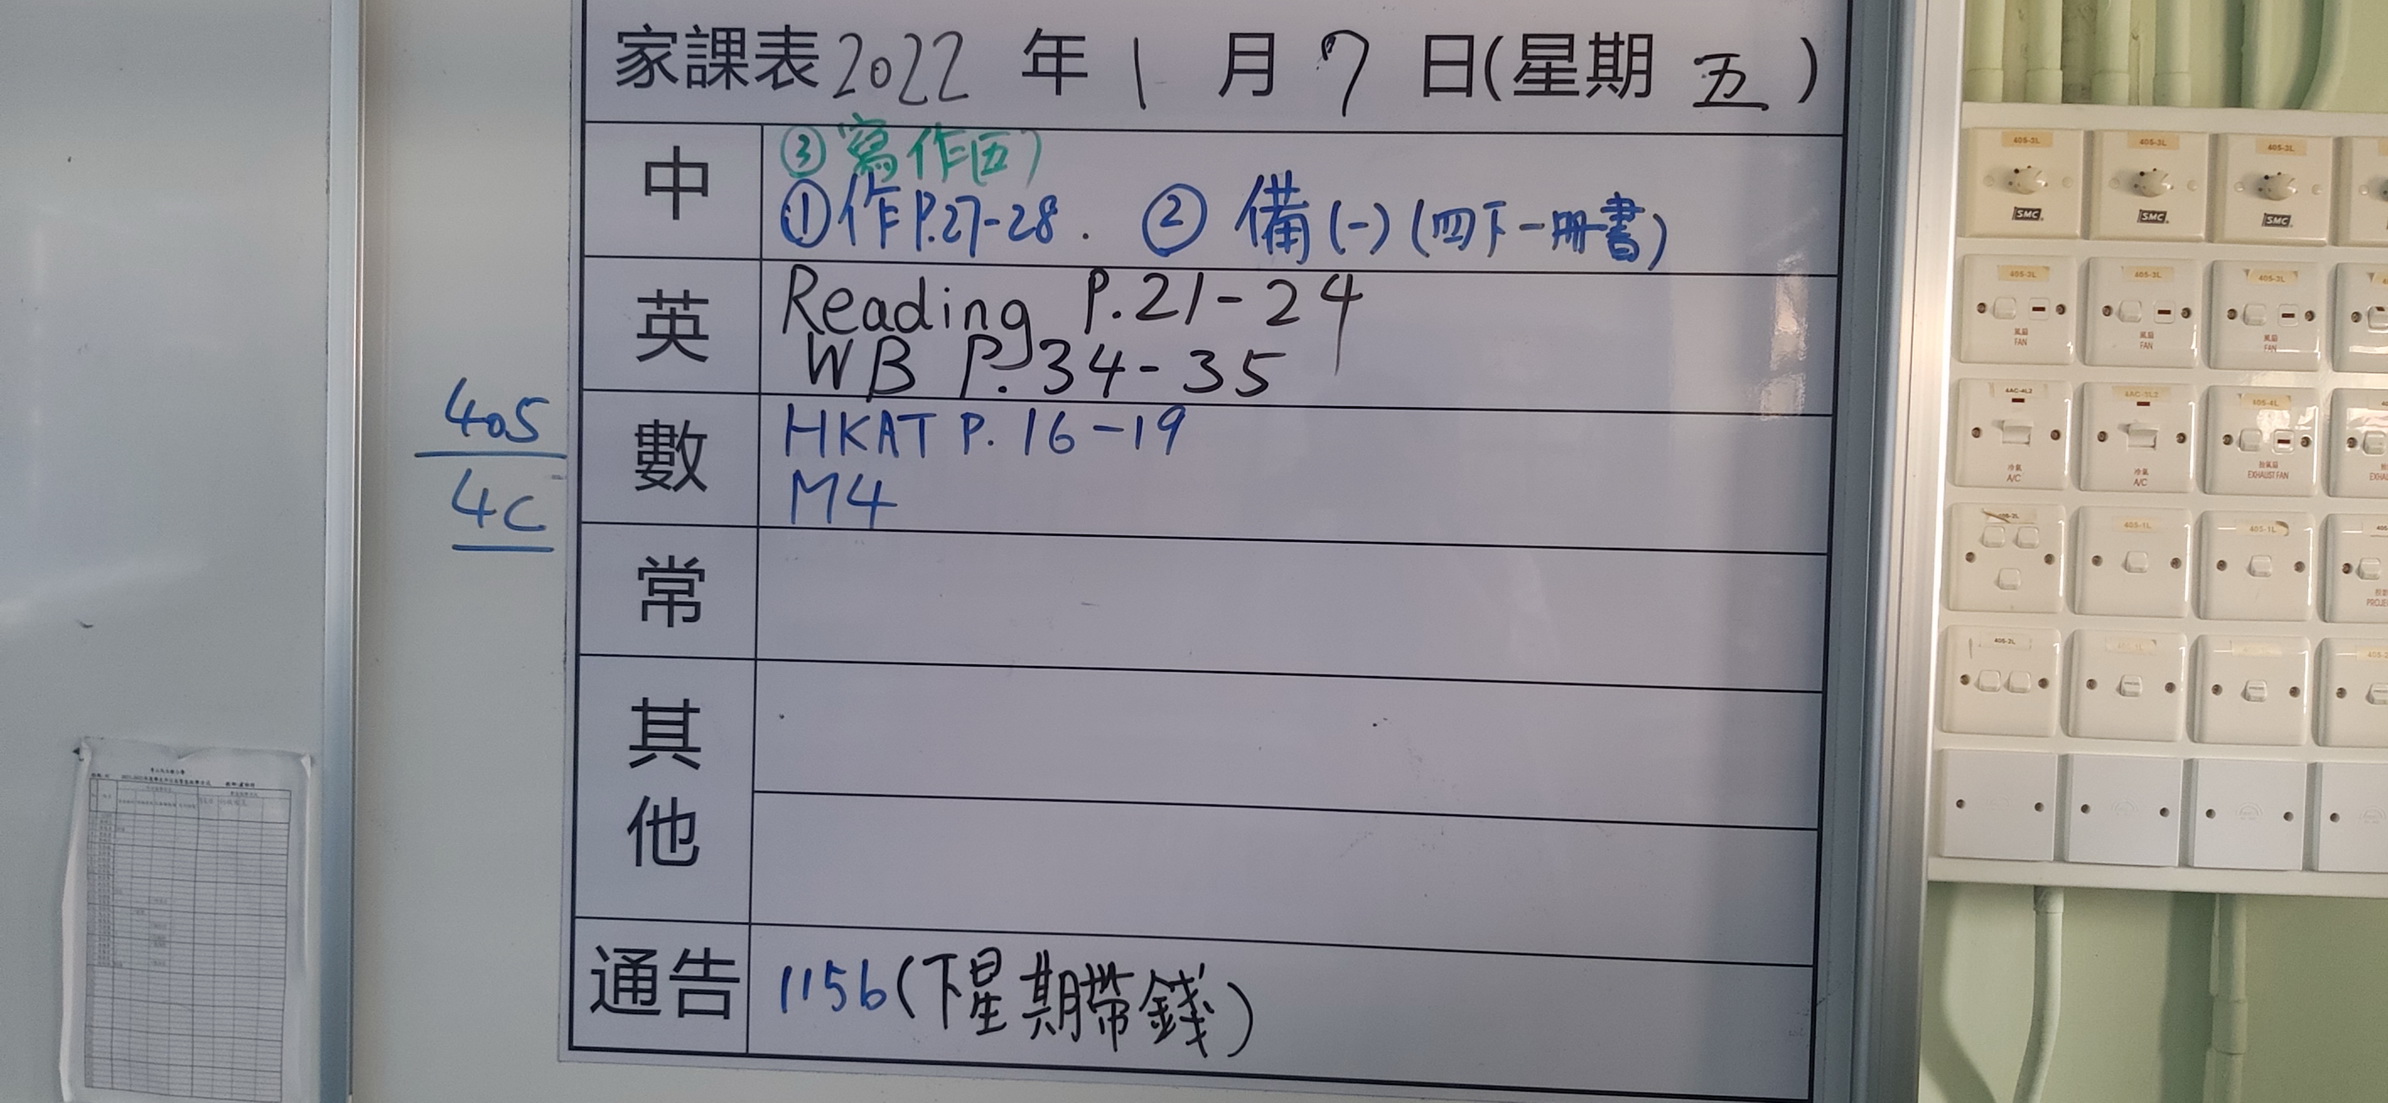 家課表 2022 年 1 月 7 日(星期 五 )
中
③ 寫作(五)
① 作 P.27-28 . ② 備(一)(四下一冊書)
英
Reading P.21-24
WB P.34-35
數
HKAT P. 16-19
M4
常
其他
通告
1156(下星期帶錢)
405
4C
405-3L 405-3L 405-3L
SMC SMC SMC
405-3L 405-3L 405-3L
風扇 風扇 風扇
FAN FAN FAN
4AC-4L3 4AC-3L2 405-4L
冷氣 冷氣 抽氣扇
A/C A/C EXHAUST FAN
405-1L 405-1L
405-2L